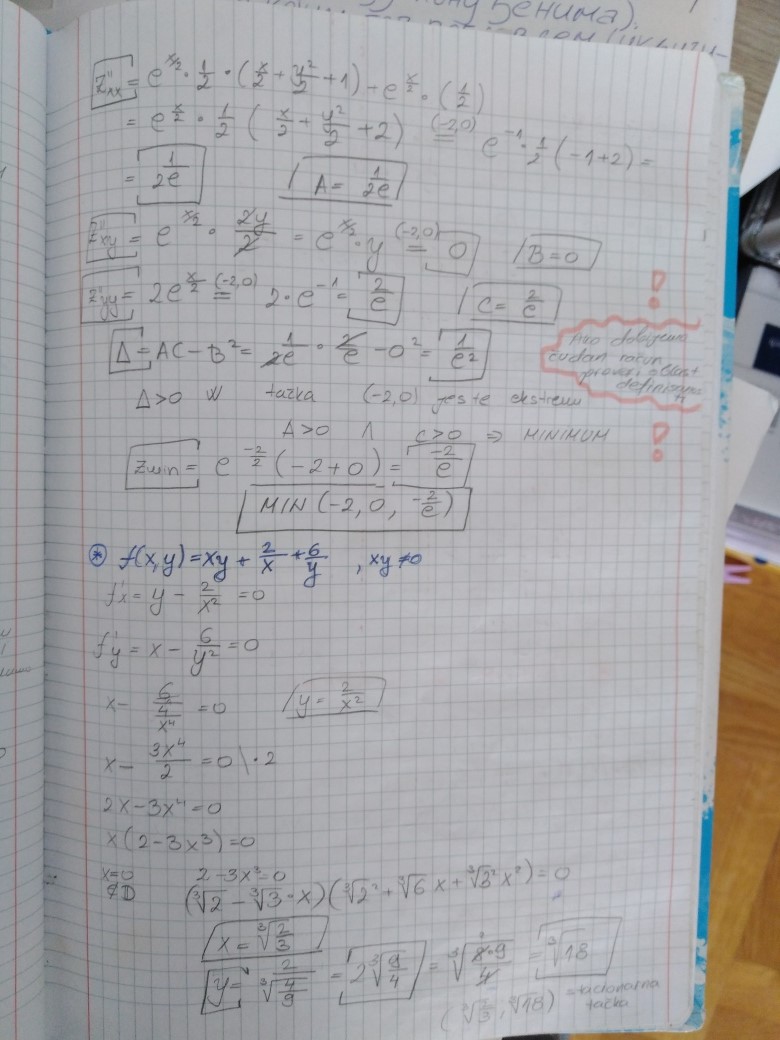 z''xx = e^(x/2) · 1/2 · (x/2 + y²/2 + 1) + e^(x/2) · (1/2)
= e^(x/2) · 1/2 (x/2 + y²/2 + 2) (-2,0) = e^(-1) · 1/2 (-1+2) =
= 1/2e A = 1/2e
z''xy = e^(x/2) · 2y/2 = e^(x/2) · y (-2,0) = 0 B = 0
z''yy = 2e^(x/2) (-2,0) = 2 · e^(-1) = 2/e C = 2/e !
Δ = AC - B² = 1/2e · 2/e - 0² = 1/e²
čudan račun
oblast
Δ>0 tačka (-2,0) jeste ekstrem
A>0 ∧ C>0 ⇒ MINIMUM !
zmin = e^(-2/2) (-2+0) = -2/e
MIN (-2, 0, -2/e)
⊛ f(x,y) = xy + 2/x + 6/y , xy ≠ 0
f'x = y - 2/x² = 0
f'y = x - 6/y² = 0
x - 6/(4/x⁴) = 0 y = 2/x²
x - 3x⁴/2 = 0 \ · 2
2x - 3x⁴ = 0
x(2 - 3x³) = 0
x=0 2 - 3x³ = 0
∉D (∛2 - ∛3 · x)(∛2² + ∛6 x + ∛3² x²) = 0
x = ∛(2/3)
y = 2/∛(4/9) = 2∛(9/4) = ∛(8·9/4) = ∛18
(∛(2/3), ∛18) = stacionarna
tačka